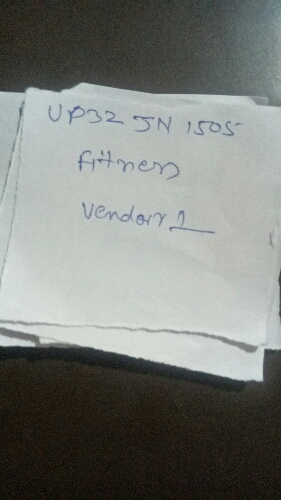 UP32 JN 1505
fitness
vendorr 1